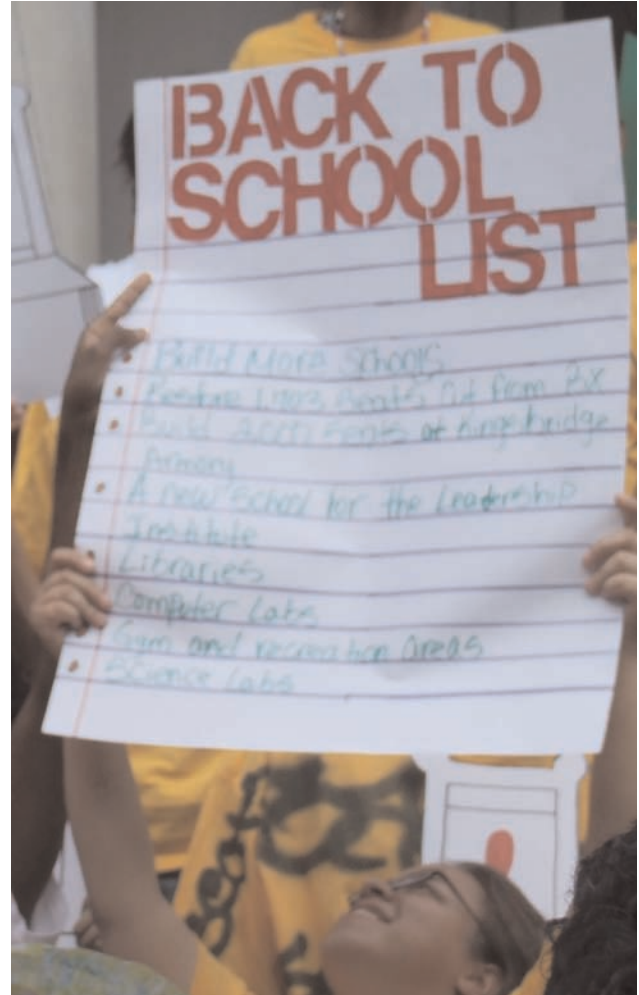 BACK TO
SCHOOL
LIST
Build More Schools
Restore Seats Cut from BX
Build Seats at Kingsbridge
Armory
A new School for the Leadership
Institute
Libraries
Computer Labs
Gym and recreation areas
Science Labs